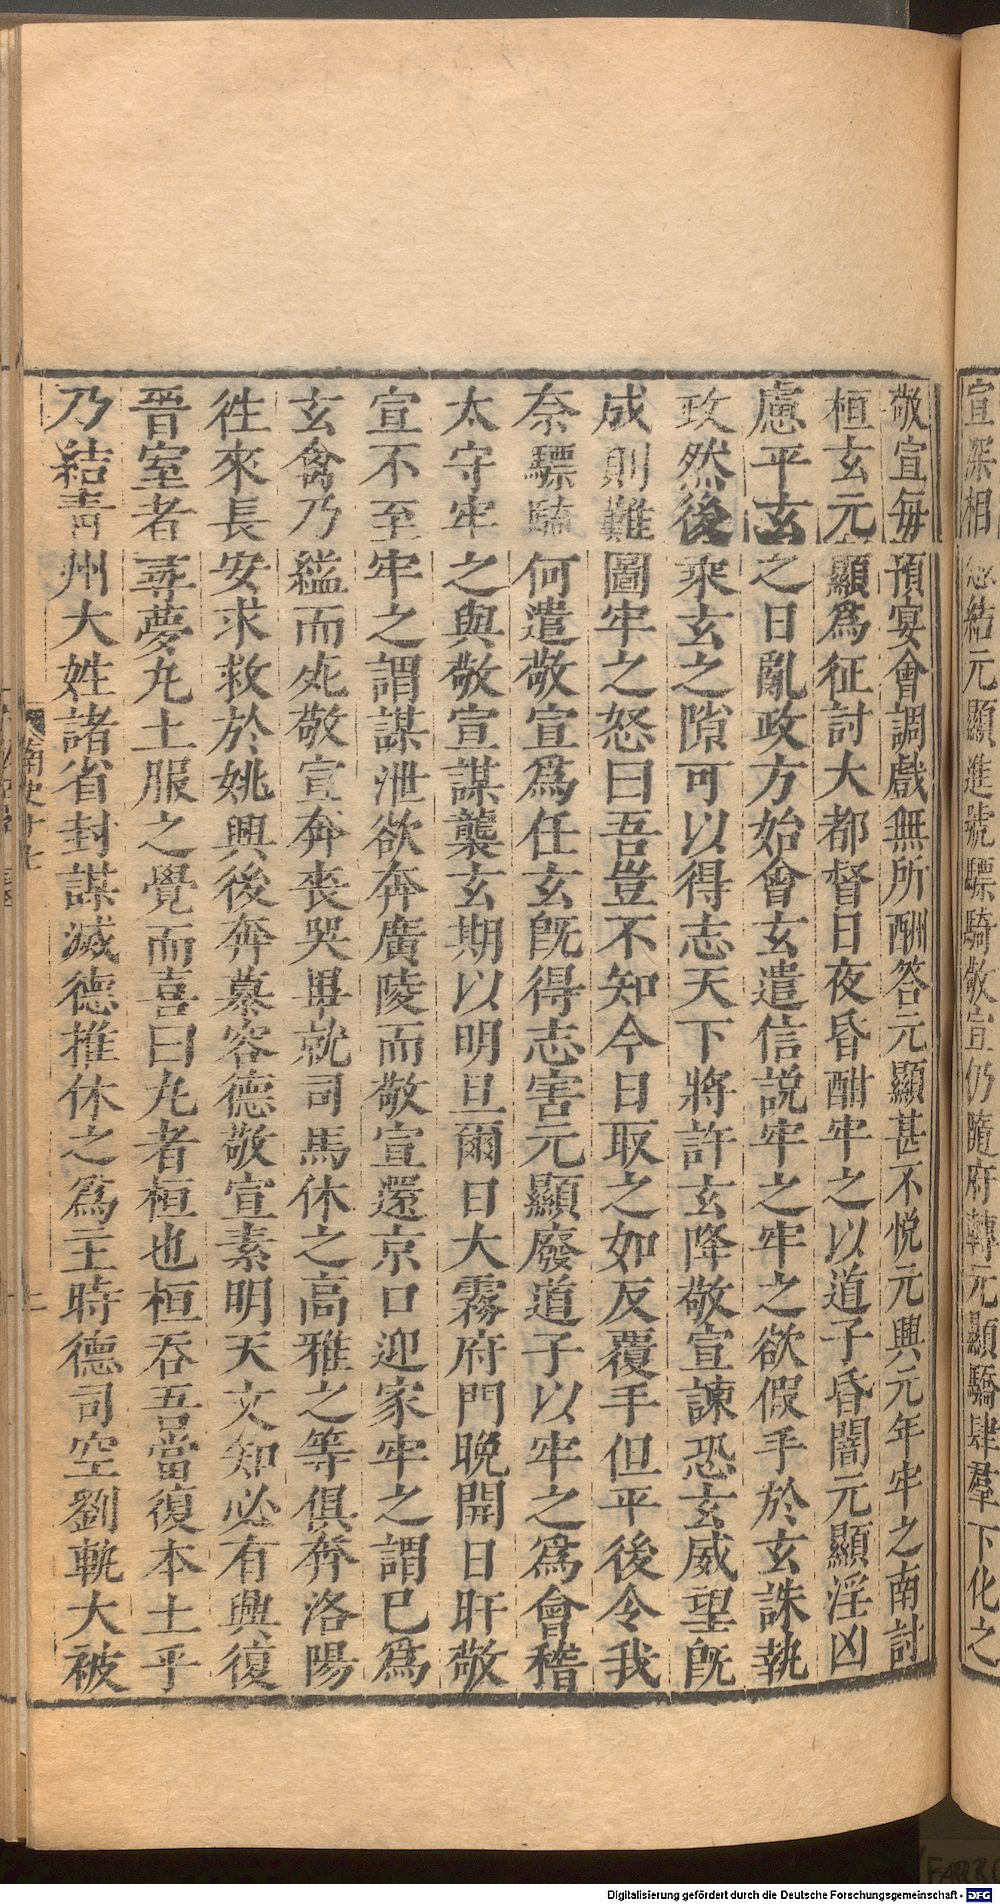 宣深相結元顯進號驃騎敬宣仍隨府轉元顯驕肆羣下化之
敬宣每預宴會調戲無所酬答元顯甚不悅元興元年牢之南討
桓玄元顯爲征討大都督日夜昏酣牢之以道子昏闇元顯淫凶
慮平玄之日亂政方始會玄遣信說牢之牢之欲假手於玄誅執
政然後乘玄之隙可以得志天下將許玄降敬宣諫恐玄威望旣
成則難圖牢之怒曰吾豈不知今日取之如反覆手但平後令我
奈驃騎何遣敬宣爲任玄旣得志害元顯廢道子以牢之爲會稽
太守牢之與敬宣謀襲玄期以明旦爾日大霧府門晚開日旰敬
宣不至牢之謂謀泄欲奔廣陵而敬宣還京口迎家牢之謂已爲
玄禽乃縊而死敬宣奔喪哭畢就司馬休之高雅之等俱奔洛陽
徃來長安求救於姚興後奔慕容德敬宣素明天文知必有興復
晉室者尋夢丸土服之覺而喜曰丸者桓也桓吞吾當復本土乎
乃結靑州大姓諸省封謀滅德推休之爲主時德司空劉軌大被
南史十七
Digitalisierung gefördert durch die Deutsche Forschungsgemeinschaft - DFG